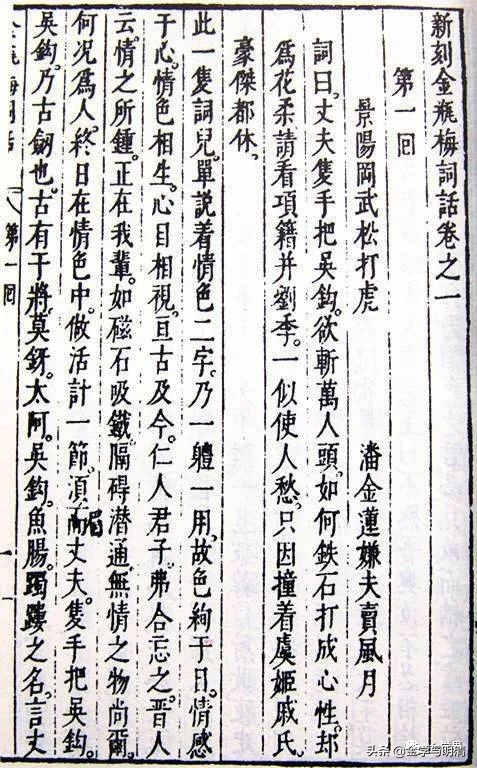 新刻金瓶梅詞話卷之一
第一回
景陽岡武松打虎　潘金蓮嫌夫賣風月
詞曰。丈夫隻手把吳鈎。欲斬萬人頭。如何鉄石打成心性。却
爲花柔請看項籍并劉季。一似使人愁。只因撞着虞姬戚氏。
豪傑都休。
此一隻詞兒。單說着情色二字。乃一體一用。故色絢于目。情感
于心。情色相生。心目相視。亘古及今。仁人君子。弗合忘之。晋人
云。情之所鍾。正在我輩。如磁石吸鐵。隔碍潜通。無情之物尚爾。
何况爲人。終日在情色中。做活計一節。湏丈夫。隻手把吳鈎。
吳鈎。乃古劒也。古有干將。莫釾。太阿。吳鈎。魚腸。躅之名。言丈
第一回
头条 @金学与明清